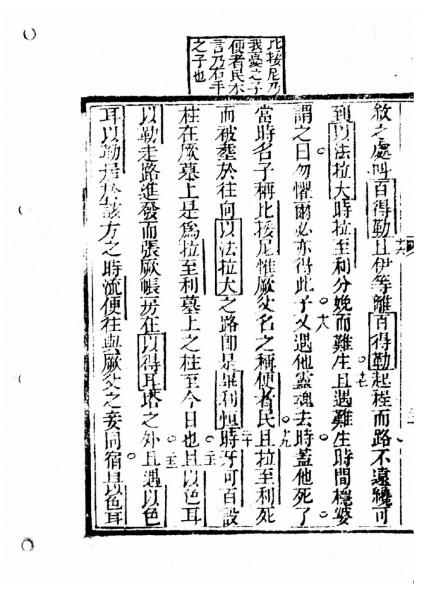 比接尼乃
我憂之子
便者民
言乃右手
之子也
敘之處叫百得勒十六且伊等離百得勒起程而路不遠纔可
到以法拉大時拉至利分娩而難生十七且遇難生時間穩婆
謂之曰勿懼爾必亦得此子十八又遇他蓋魂去時蓋他死了
當時名子稱比接尼惟厥父名之稱便者民十九且拉至利死
而被塟於往向以法拉大之路即是畢利恒二十時牙可百設
柱在厥墓上是為拉至利墓上之柱至今日也二十一且以色耳
以勒走路進發而張厥帳房住以得耳塔之外二十二且遇以色
耳以勒居於該方之時流便往與厥父之妾同宿且以色耳